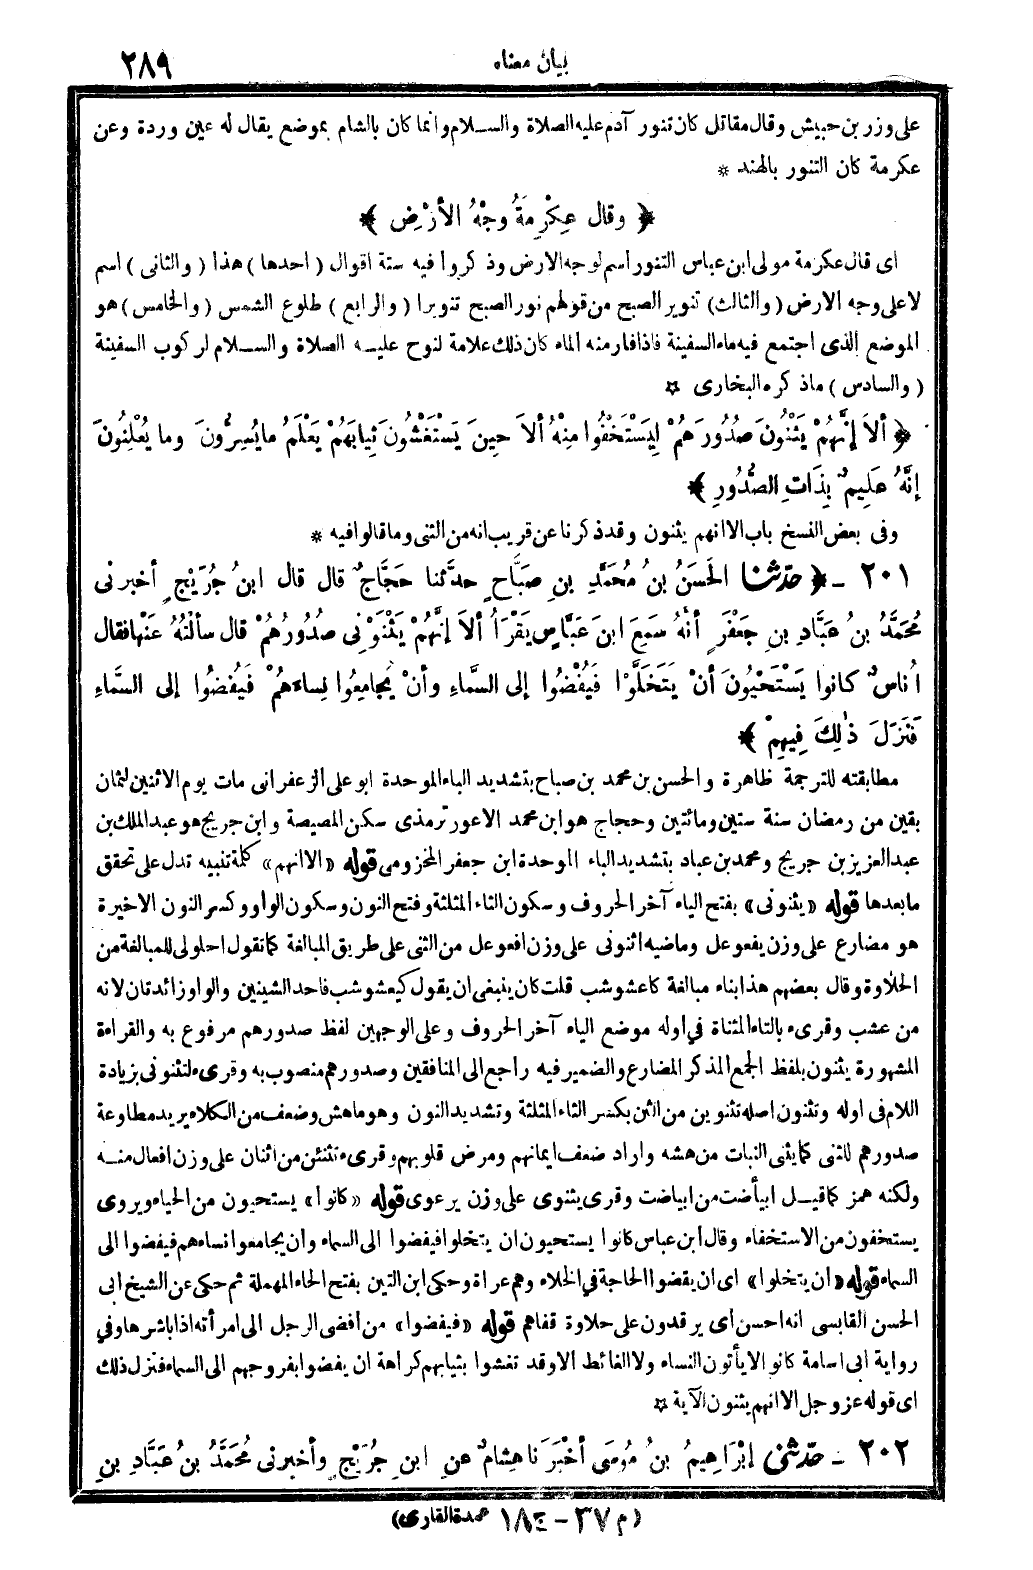 بيان معناه
٢٨٩
على وزر بن حبيش وقال مقاتل كان تنور آدم عليه الصلاة والسلام وانما كان بالشام بموضع يقال له عين وردة وعن
عكرمة كان التنور بالهند *
﴿ وقال عِكْرِمَةُ وجْهُ الأرْضِ ﴾
اى قال عكرمة مولى ابن عباس التنور اسم لوجه الارض وذكروا فيه ستة اقوال (احدها) هذا (والثانى) اسم
لاعلى وجه الارض (والثالث) تنوير الصبح من قولهم نور الصبح تنويرا (والرابع) طلوع الشمس (والخامس) هو
الموضع الذى اجتمع فيه ماء السفينة فاذا فار منه الماء كان ذلك علامة لنوح عليه الصلاة والسلام لركوب السفينة
(والسادس) ماذكره البخارى *
﴿ ألاَ إنَّهُمْ يَثْنُونَ صُدُورَهُمْ لِيَسْتَخْفُوا مِنْهُ ألاَ حِينَ يَسْتَغْشُونَ ثِيابَهُمْ يَعْلَمُ مايُسِرُّونَ وما يُعْلِنُونَ
إنَّهُ عَلِيمٌ بِذَاتِ الصُّدُورِ ﴾
وفى بعض النسخ باب الا انهم يثنون وقد ذكرنا عن قريب انه من الثنى وما قالوا فيه *
٢٠١ - ﴿ حدّثنا الحَسَنُ بنُ مُحَمَّدِ بنِ صَبَّاحٍ حدَّثنا حَجَّاجٌ قال قال ابنُ جُرَيْجٍ أخبرنى
مُحَمَّدُ بنُ عَبَّادِ بنِ جَعْفَرٍ أنَّهُ سَمِعَ ابنَ عَبَّاسٍ يَقْرَأُ ألاَ إنَّهُمْ يَثْنَوْنِى صُدُورُهُمْ قال سألْتُهُ عَنْها فقال
أُناسٌ كانوا يَسْتَحْيُونَ أنْ يَتَخَلَّوْا فَيُفْضُوا إلى السَّماءِ وأنْ يُجامِعُوا نِساءَهُمْ فَيُفْضُوا إلى السَّماءِ
فَنَزَلَ ذٰلِكَ فِيهِمْ ﴾
مطابقته للترجمة ظاهرة والحسن بن محمد بن صباح بتشديد الباء الموحدة ابو على الزعفرانى مات يوم الاثنين لثمان
بقين من رمضان سنة ستين ومائتين وحجاج هو ابن محمد الاعور ترمذى سكن المصيصة وابن جريج هو عبد الملك بن
عبد العزيز بن جريج ومحمد بن عباد بتشديد الباء الموحدة ابن جعفر المخزومى قوله «الا انهم» كلمة تنبيه تدل على تحقق
ما بعدها قوله «يثنونى» بفتح الياء آخر الحروف وسكون الثاء المثلثة وفتح النون وسكون الواو وكسر النون الاخيرة
هو مضارع على وزن يفعوعل وماضيه اثنونى على وزن افعوعل من الثنى على طريق المبالغة كما تقول احلولى للمبالغة من
الحلاوة وقال بعضهم هذا بناء مبالغة كاعشوشب قلت كان ينبغى ان يقول كيعشوشب فاحد الشينين والواو زائدتان لانه
من عشب وقرىء بالتاء المثناة في اوله موضع الياء آخر الحروف وعلى الوجهين لفظ صدورهم مرفوع به والقراءة
المشهورة يثنون بلفظ الجمع المذكر المضارع والضمير فيه راجع الى المنافقين وصدورهم منصوب به وقرىء لتثنونى بزيادة
اللام فى اوله وتثنون اصله تثنوين من الثن بكسر الثاء المثلثة وتشديد النون وهو ماهش وضعف من الكلاء يريد مطاوعة
صدورهم للثنى كما يثنى النبات من هشه واراد ضعف ايمانهم ومرض قلوبهم وقرىء تثنئن من اثنان على وزن افعال منه
ولكنه همز كما قيل ابيأضت من ابياضت وقرى يثنوى على وزن يرعوى قوله «كانوا» يستحيون من الحياء ويروى
يستخفون من الاستخفاء وقال ابن عباس كانوا يستحيون ان يتخلوا فيفضوا الى السماء وان يجامعوا نساءهم فيفضوا الى
السماء قوله «ان يتخلوا» اى ان يقضوا الحاجة في الخلاء وهم عراة وحكى ابن التين بفتح الحاء المهملة ثم حكى عن الشيخ ابى
الحسن القابسى انه احسن اى يرقدون على حلاوة قفاهم قوله «فيفضوا» من افضى الرجل الى امرأته اذا باشرها وفي
رواية ابى اسامة كانوا لا يأتون النساء ولا الغائط الا وقد تغشوا بثيابهم كراهة ان يفضوا بفروجهم الى السماء فنزل ذلك
اى قوله عز وجل الا انهم يثنون الآية *
٢٠٢ - حدّثنى إبْرَاهِيمُ بنُ مُوسَى أخْبَرَنا هِشامٌ عنِ ابنِ جُرَيْجٍ وأخبرنى مُحَمَّدُ بنُ عَبَّادِ بنِ
(م ٣٧ - ج ١٨ عمدة القارى)